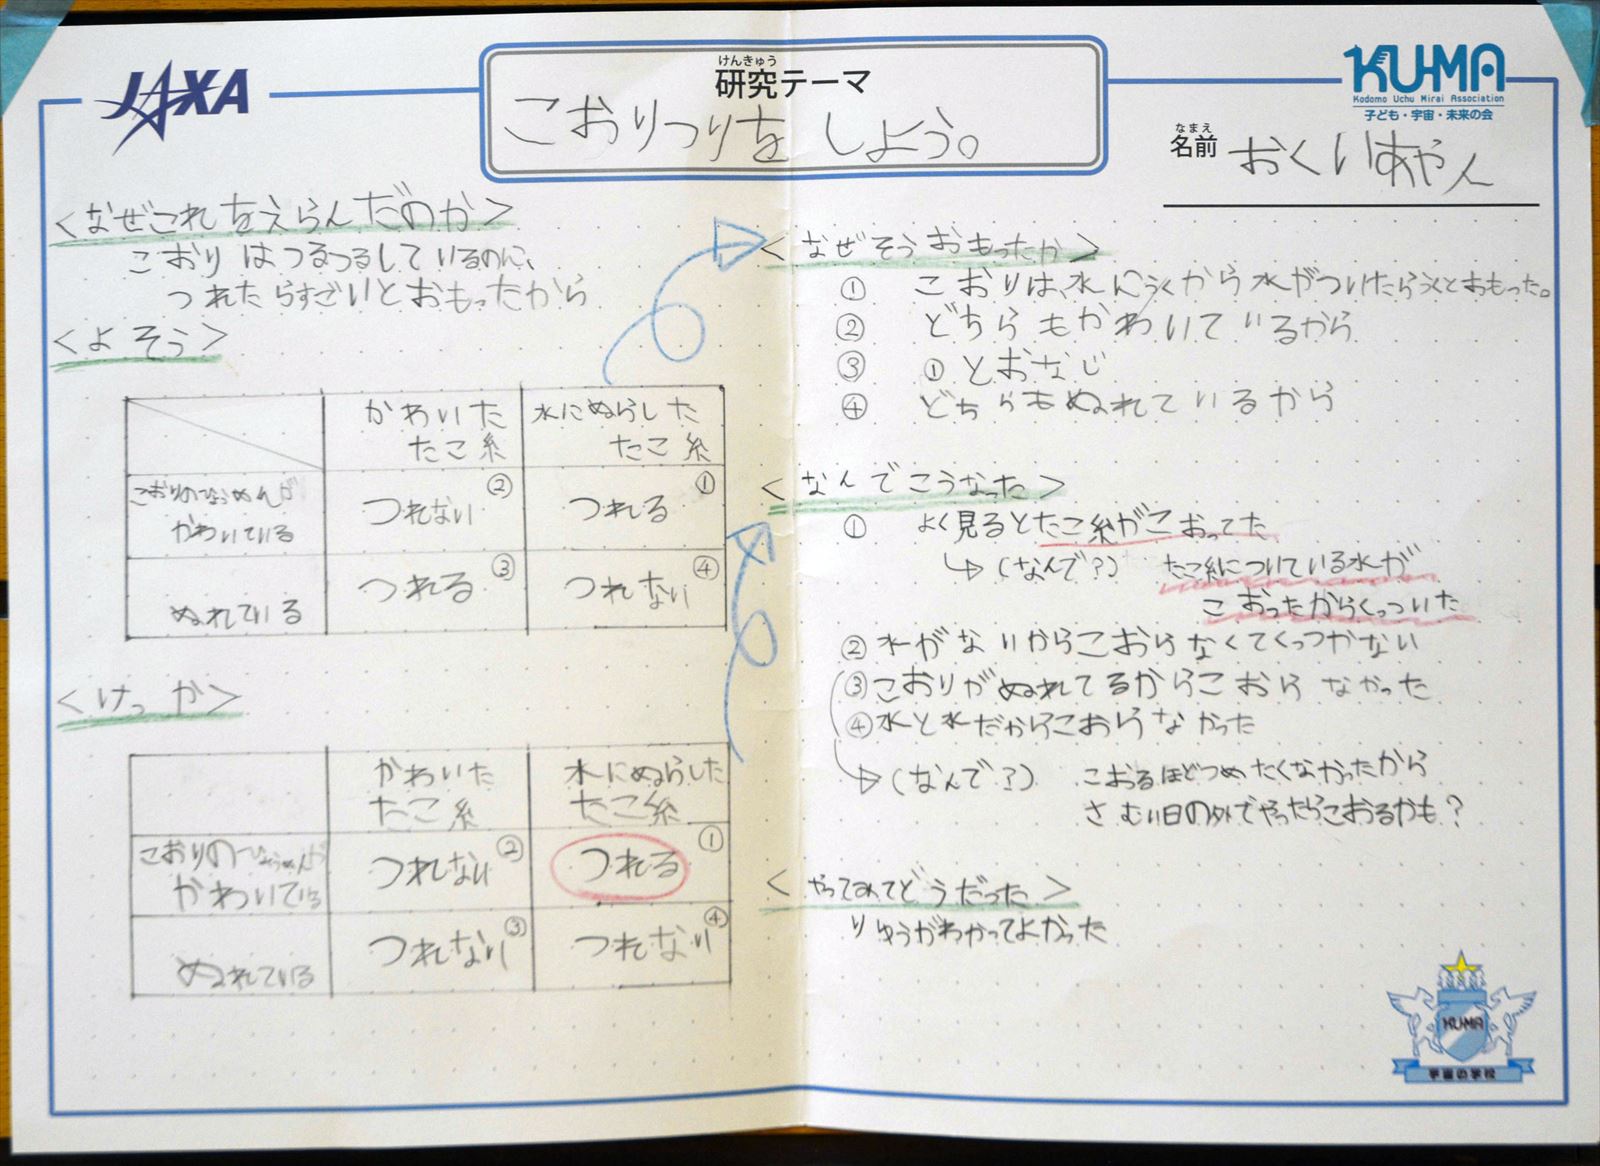 JAXA
けんきゅう
研究テーマ
こおりつりをしよう。
KU-MA
Kodomo Uchu Mirai Association
子ども・宇宙・未来の会
なまえ
名前 おくいあやん
<なぜこれをえらんだのか>
こおりはつるつるしているのに、
つれたらすごいとおもったから
<よそう>
かわいた
たこ糸
水にぬらした
たこ糸
こおりのひょうめんが
かわいている
つれない ②
つれる ①
ぬれている
つれる ③
つれない ④
<けっか>
かわいた
たこ糸
水にぬらした
たこ糸
こおりのひょうめんが
かわいている
つれない ②
つれる ①
ぬれている
つれない ③
つれない ④
<なぜそうおもったか>
① こおりは、水にうくから水がついたらうくとおもった。
② どちらもかわいているから
③ ①とおなじ
④ どちらもぬれているから
<なんでこうなった>
① よく見るとたこ糸がこおってた
(なんで?) たこ糸についている水が
こおったからくっついた
② 水がないからこおらなくてくっつかない
③ こおりがぬれてるからこおらなかった
④ 水と水だからこおらなかった
(なんで?) こおるほどつめたくなかったから
さむい日の外でやったらこおるかも?
<やってみてどうだった>
りゆうがわかってよかった
KUMA
宇宙の学校